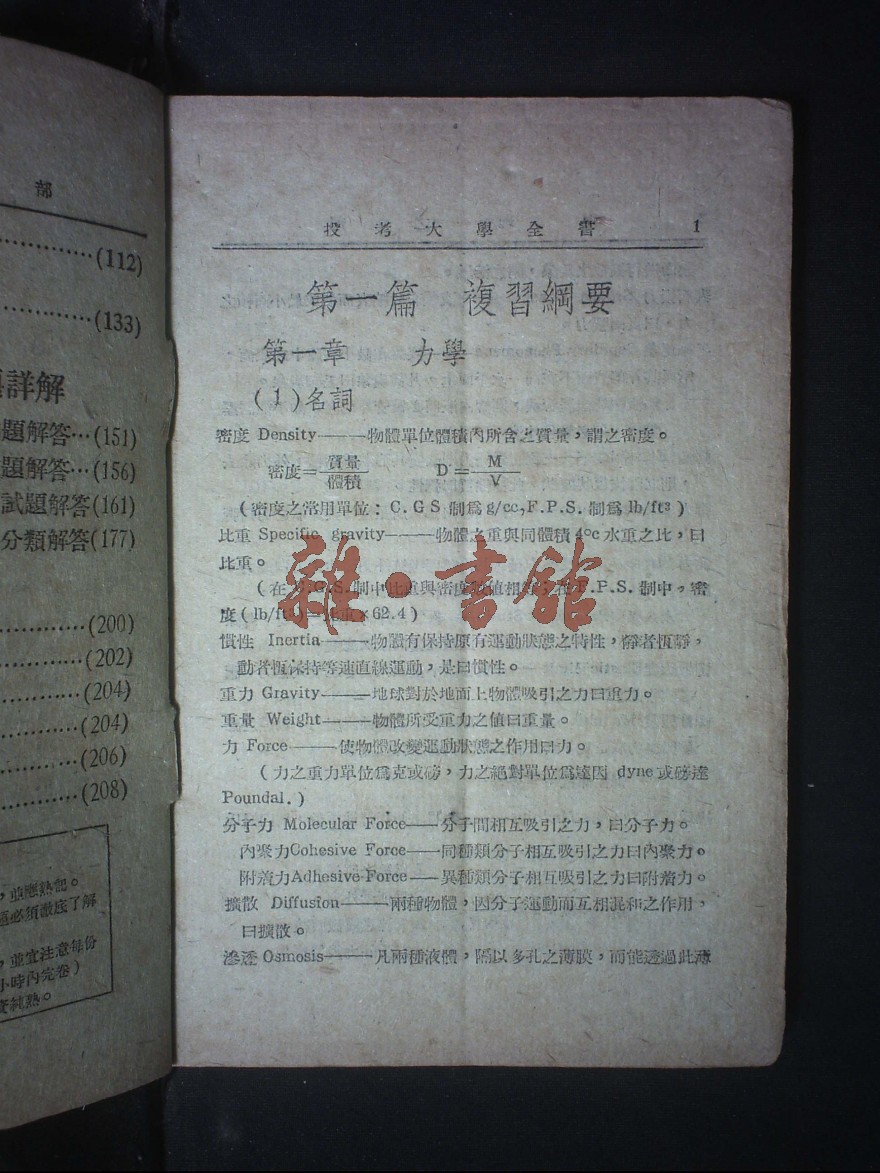 部
(112)
(133)
詳解
題解答…(151)
題解答…(156)
試題解答(161)
分類解答(177)
(200)
(202)
(204)
(204)
(206)
(208)
，並應熟記。
必須澈底了解
，並宜注意每份
小時內完卷）
純熟。
投考大學全書 1
第一篇 複習綱要
第一章 力學
(1)名詞
密度 Density———物體單位體積內所含之質量，謂之密度。
密度=質量/體積 D=M/V
(密度之常用單位：C.G.S 制爲 g/cc,F.P.S. 制爲 lb/ft³)
比重 Specific gravity———物體之重與同體積 4°c 水重之比，曰
比重。
(在 C.G.S.制中比重與密度數值相等；在F.P.S. 制中，密
度(lb/ft³)=比重×62.4)
慣性 Inertia———物體有保持原有運動狀態之特性，靜者恆靜，
動者恆保持等速直線運動，是曰慣性。
重力 Gravity———地球對於地面上物體吸引之力曰重力。
重量 Weight———物體所受重力之值曰重量。
力 Force———使物體改變運動狀態之作用曰力。
(力之重力單位爲克或磅，力之絕對單位爲達因 dyne 或磅達
Poundal.)
分子力 Molecular Force——分子間相互吸引之力，曰分子力。
內聚力Cohesive Force——同種類分子相互吸引之力曰內聚力。
附着力Adhesive Force——異種類分子相互吸引之力曰附着力。
擴散 Diffusion———兩種物體，因分子運動而互相混和之作用，
曰擴散。
滲透 Osmosis———凡兩種液體，隔以多孔之薄膜，而能透過此薄
雜·書館